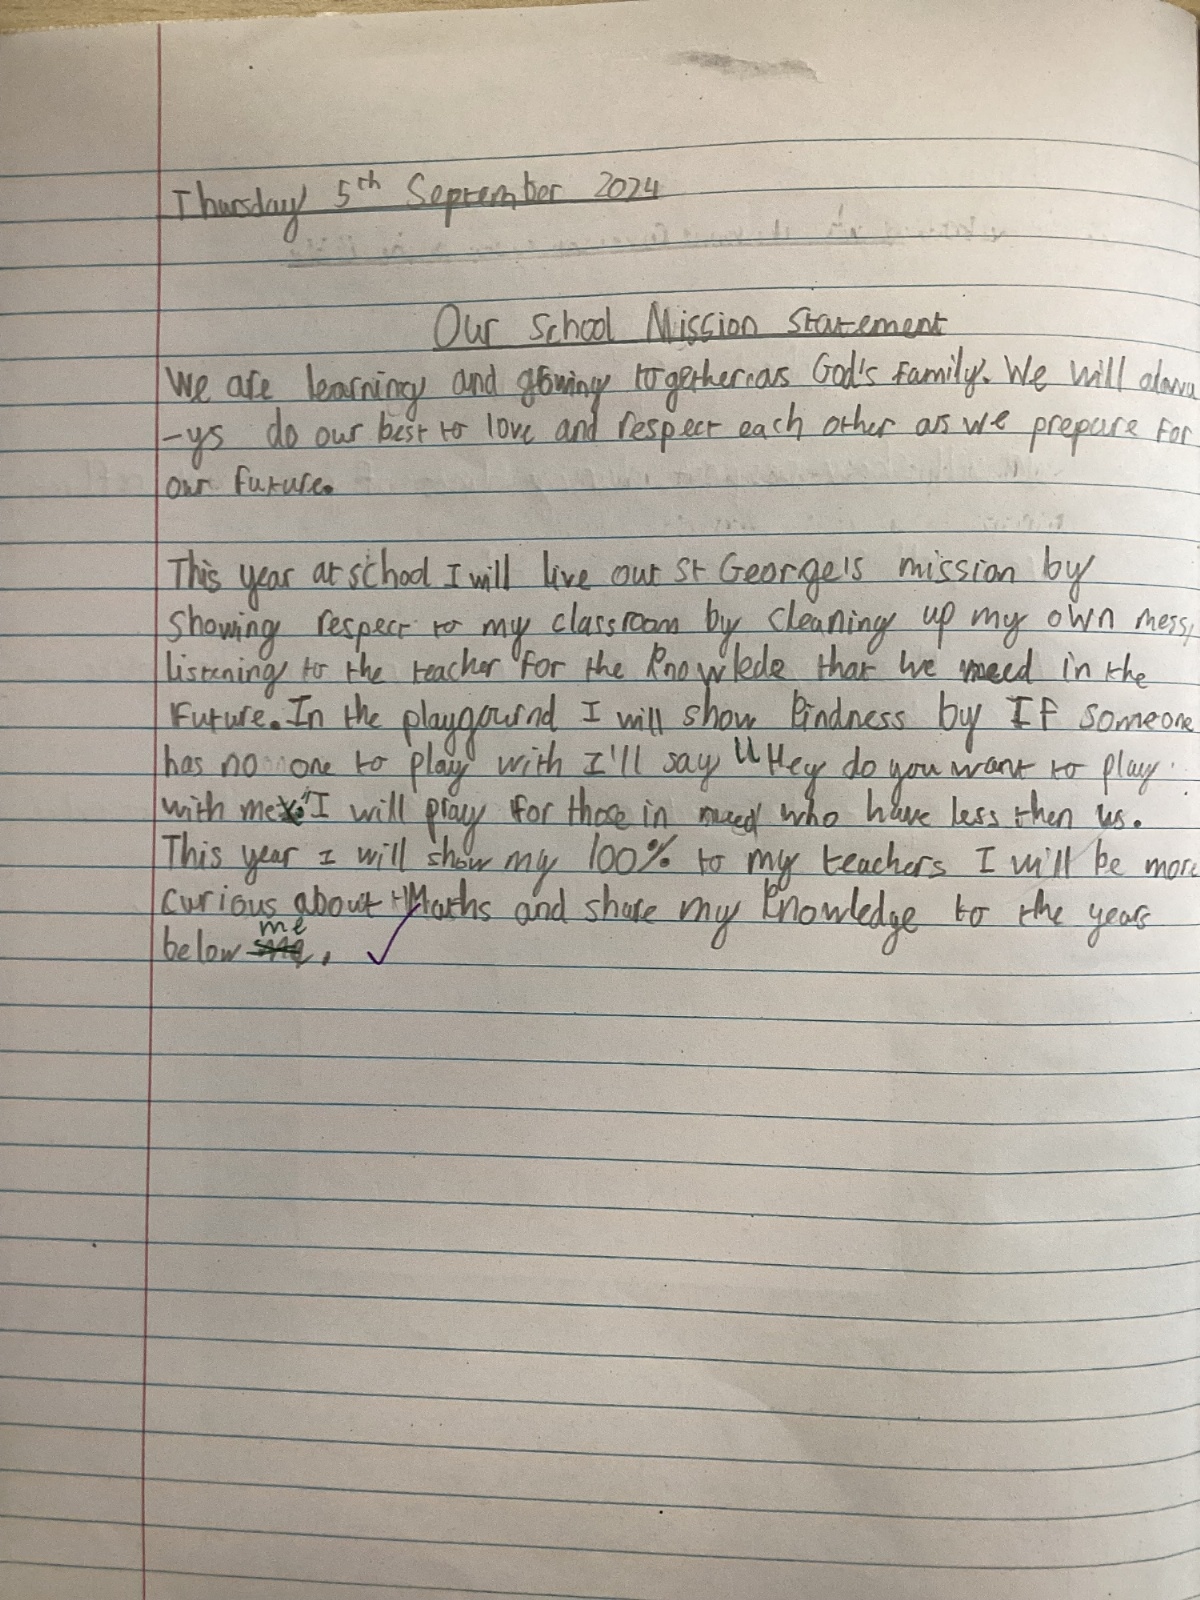 Thursday 5th September 2024
Our School Mission Statement
We are learning and growing together as God's family. We will alawa
-ys do our best to love and respect each other as we prepare for
our future.
This year at school I will live out St George's mission by
showing respect to my classroom by cleaning up my own mess,
listening to the teacher for the knowlede that we need in the
future. In the playgournd I will show kindness by If someone
has no one to play with I'll say "Hey do you want to play
with me." I will pray for those in need who have less then us.
This year I will show my 100% to my teachers I will be more
curious about Maths and share my knowledge to the years
below me.